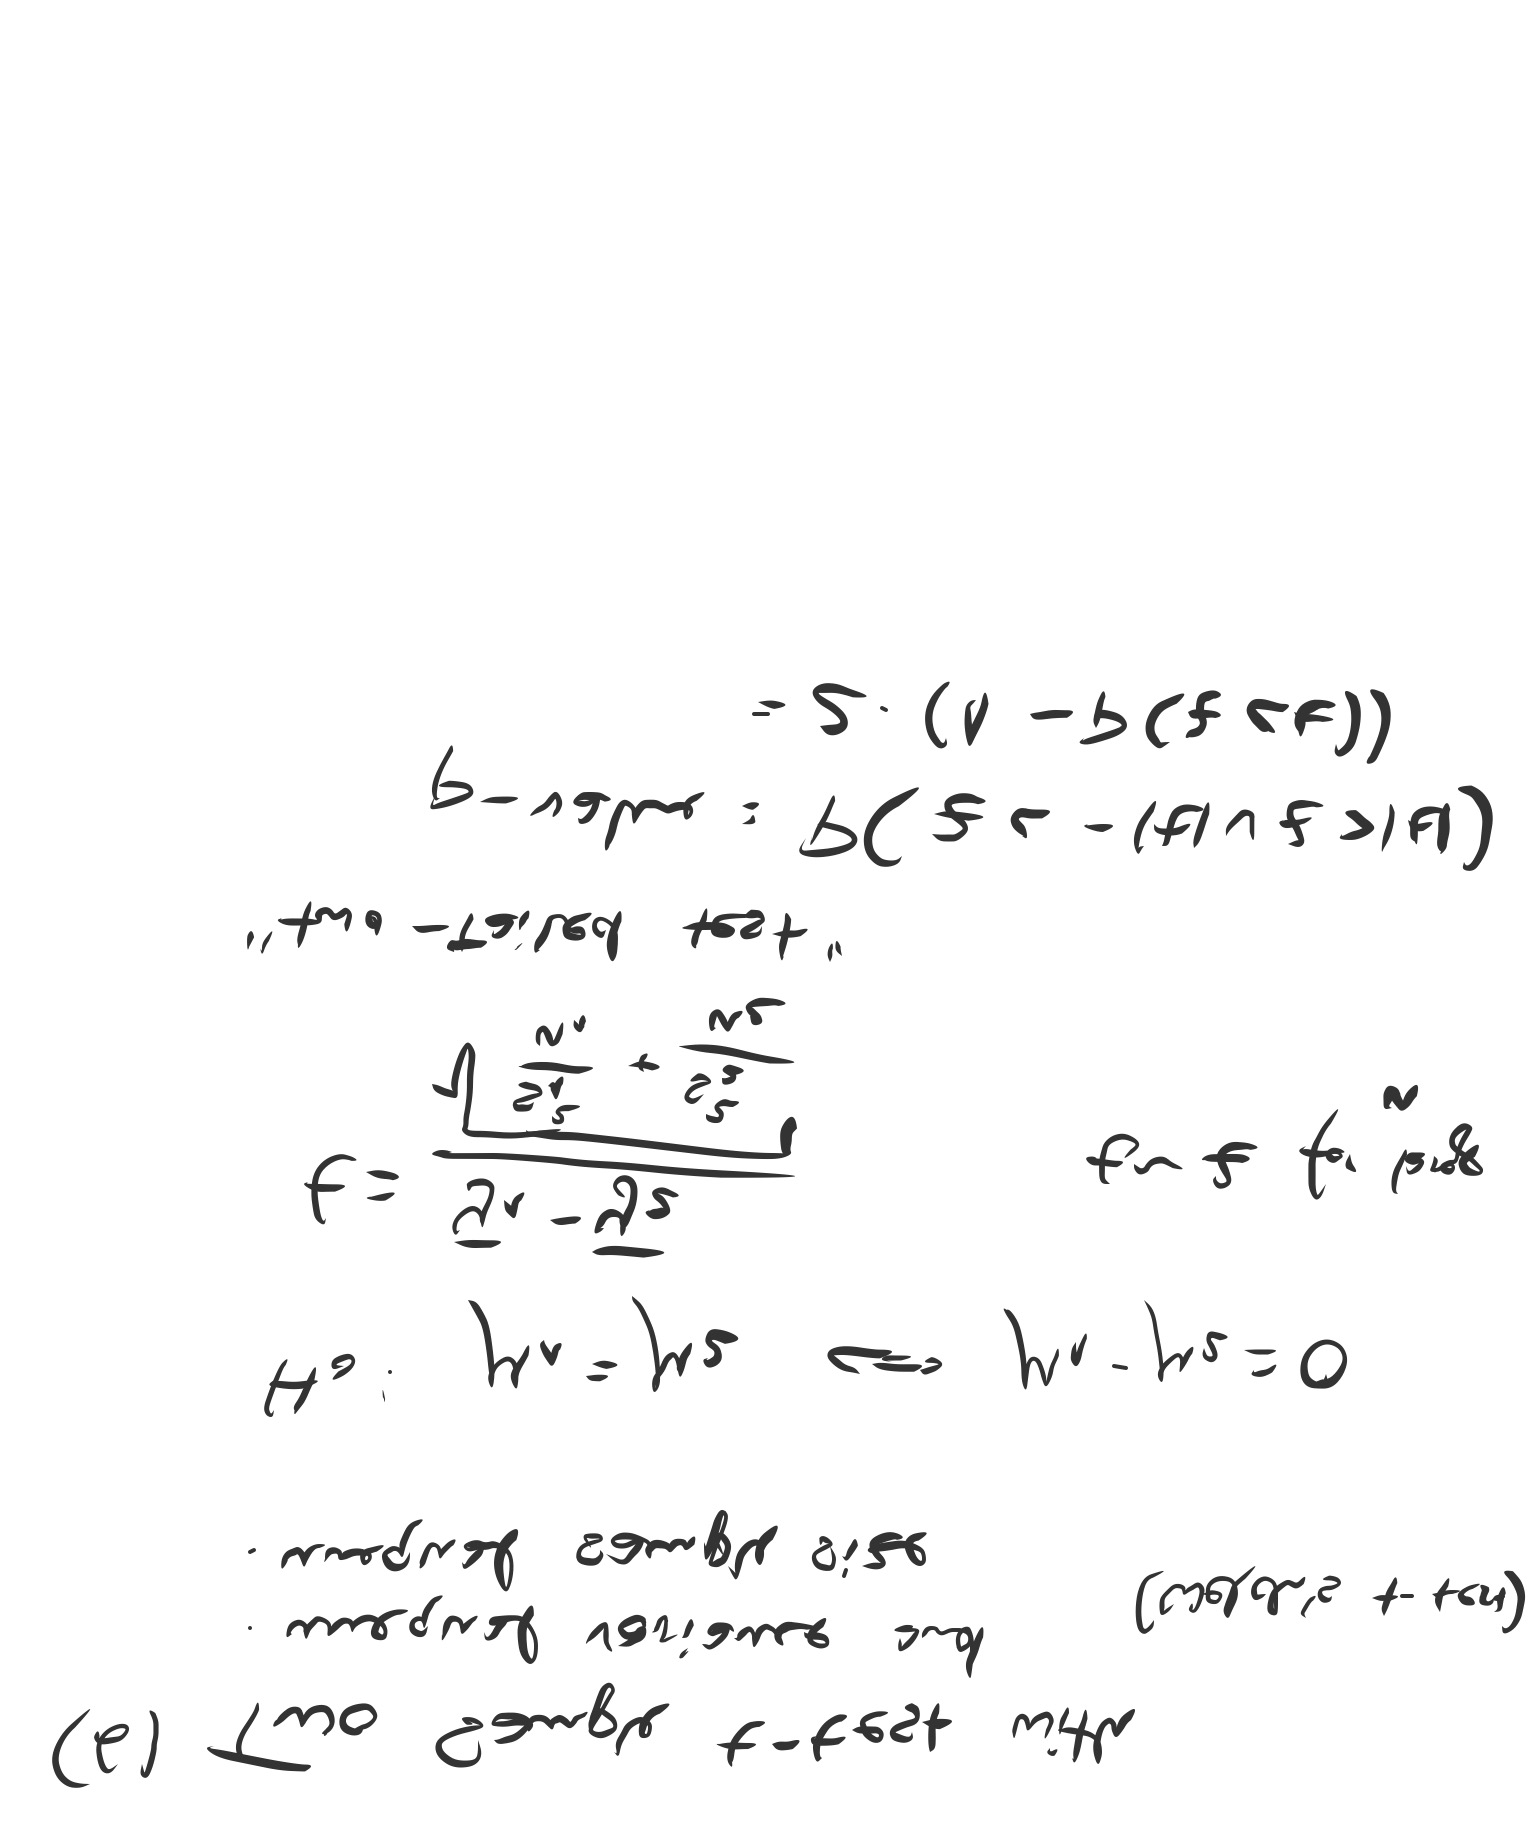 (6) Two Sample t-test with
· unequal variance and
(Welch's t-test)
· unequal sample size
H₀: μ₁ = μ₂ <=> μ₁ - μ₂ = 0
t = (ȳ₁ - ȳ₂) / √(s₁²/n₁ + s₂²/n₂)
t ~ z for large
n
"two-Tailed test"
p-value = P(z < -|t| ∨ z > |t|)
= 2 · (1 - P(z < t))